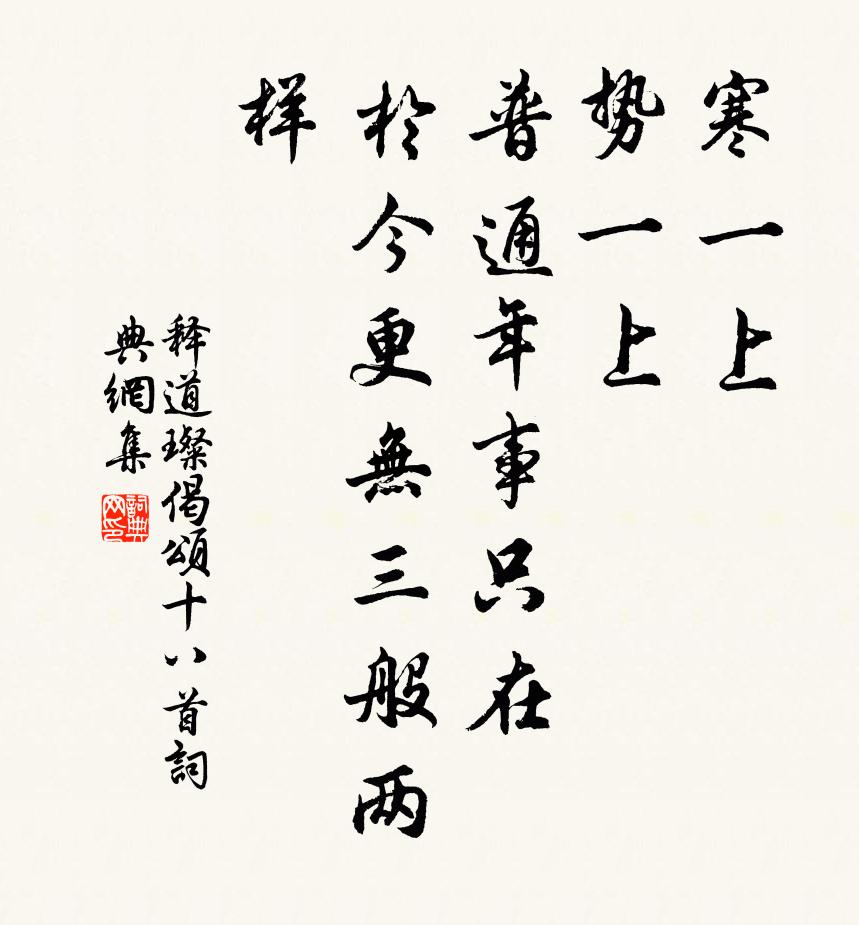 寒一上
势一上
普通年事只在
於今更無三般两
样
释道璨偈頌十八首詞
典網集
詞典網印